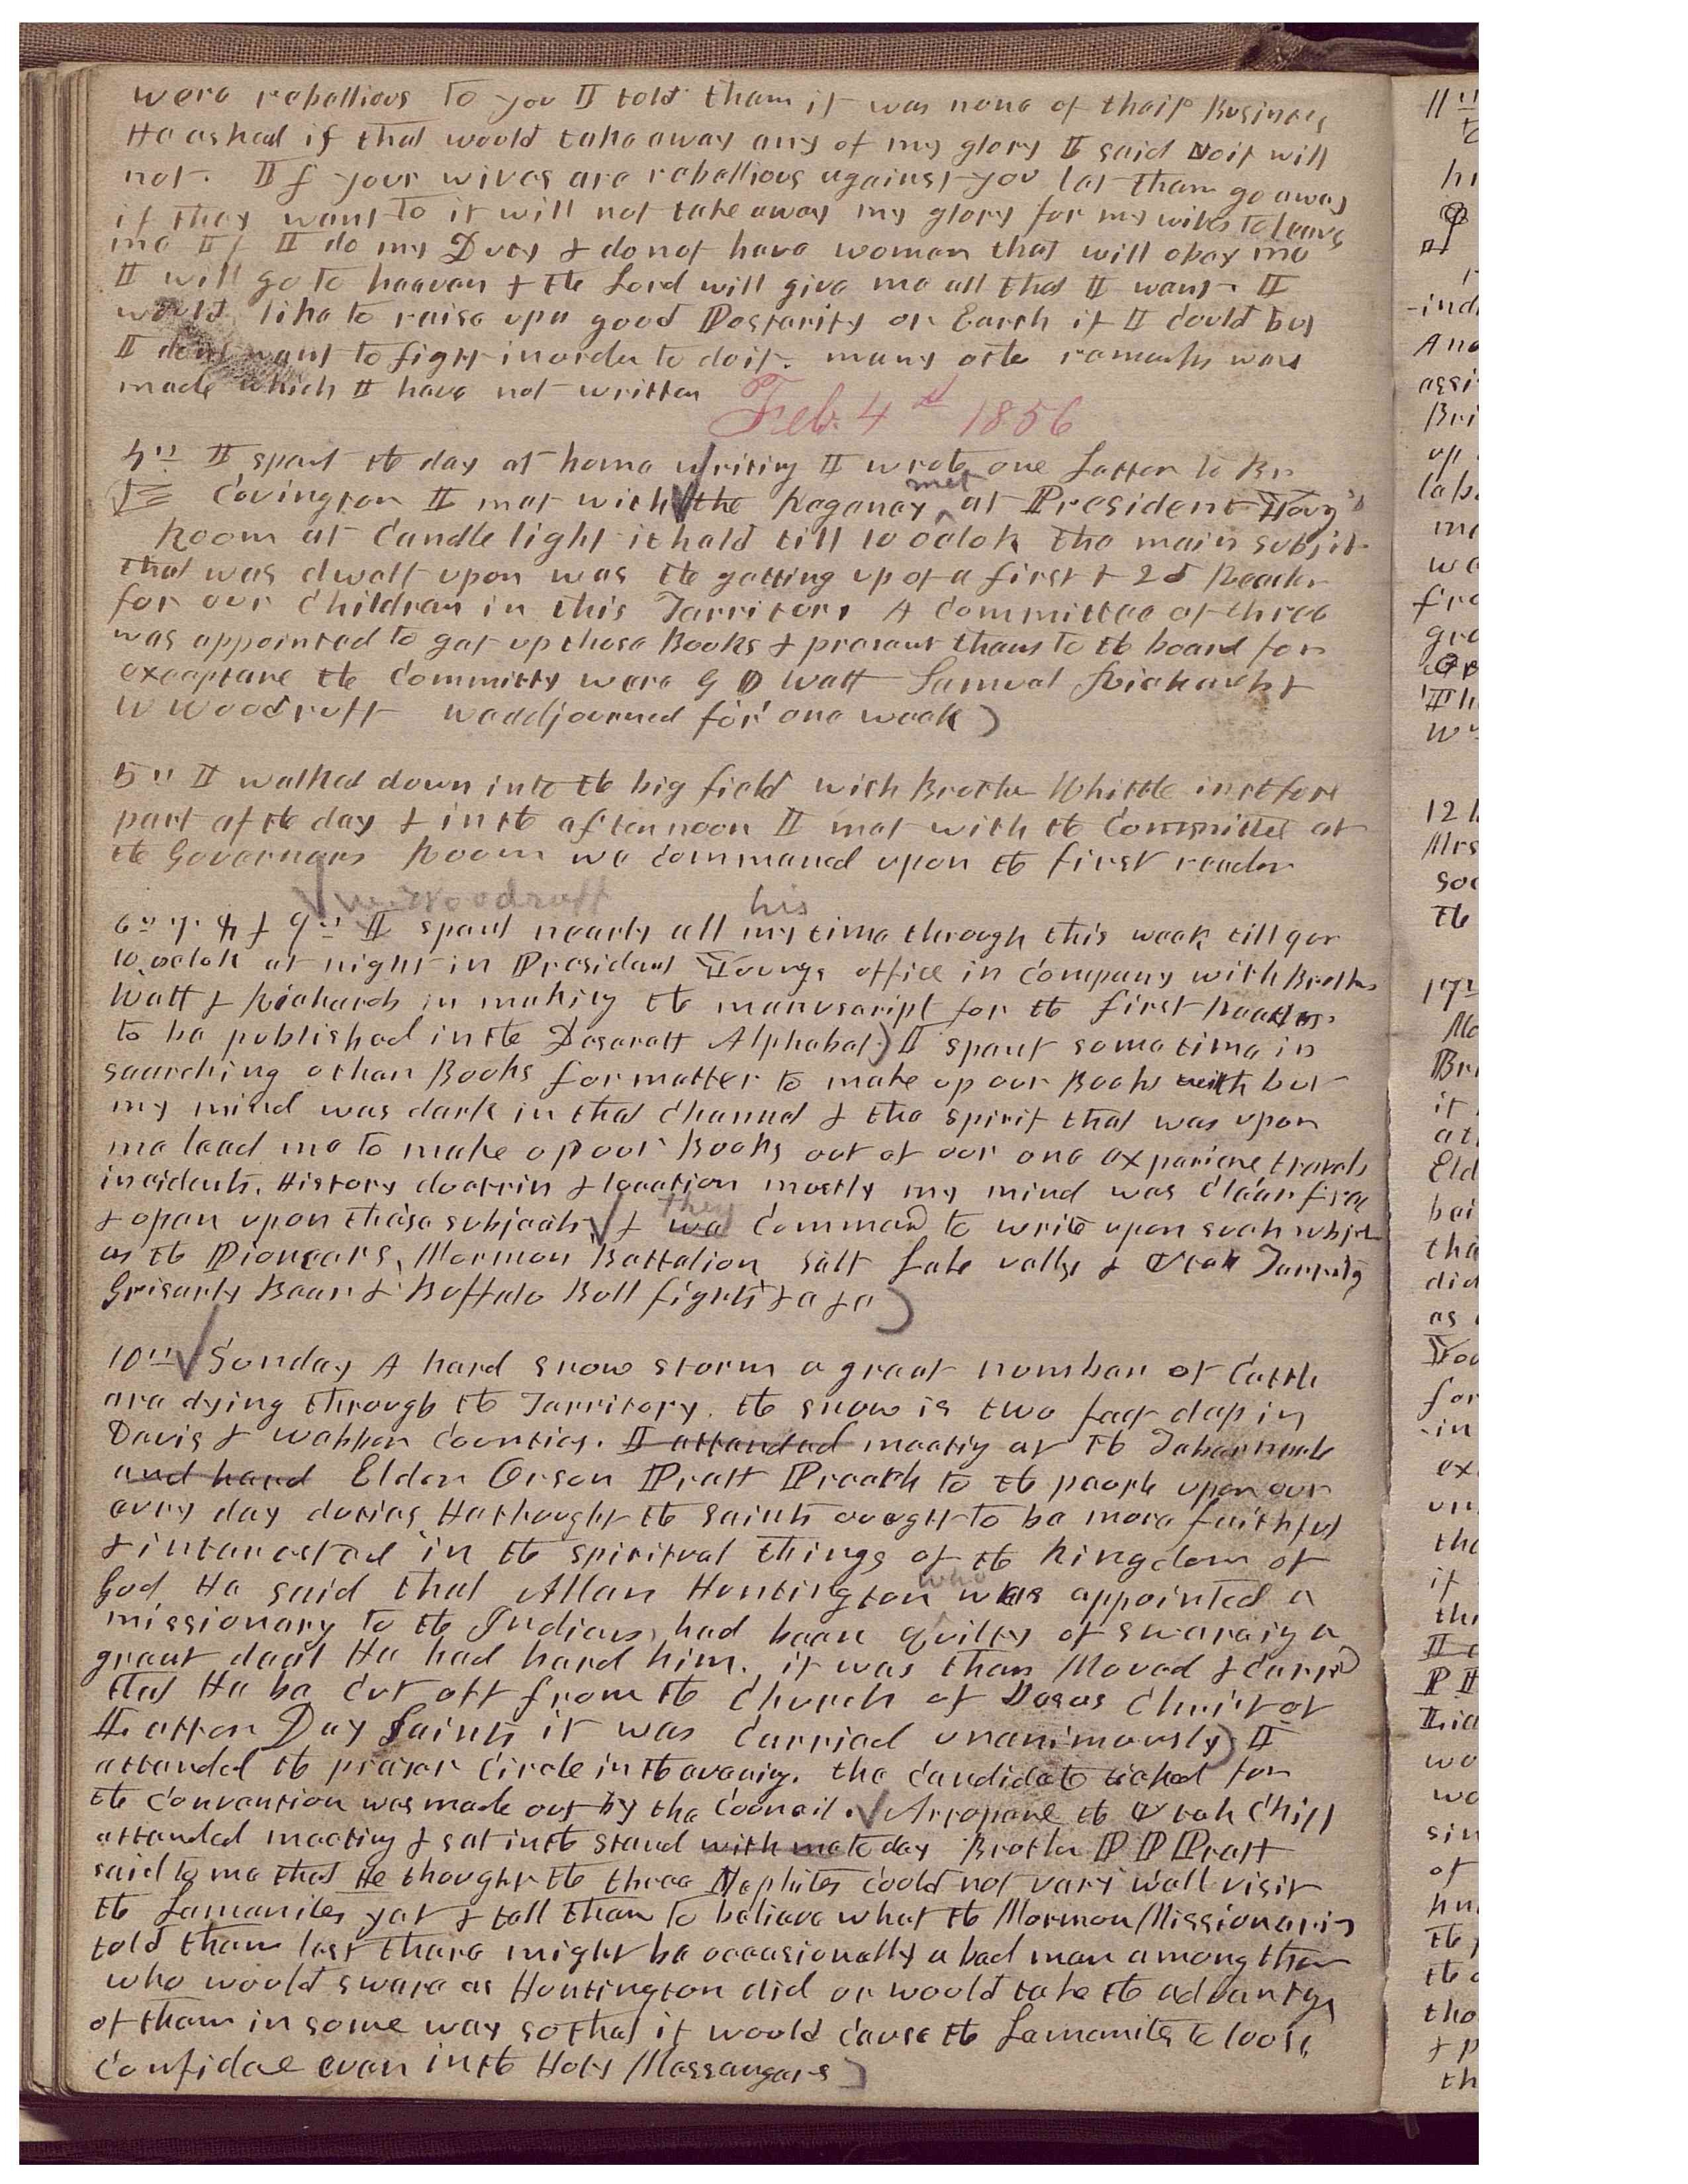 were rebellious to you I told them it was none of their Business
He asked if that would take away any of my glory I said No it will
not. If your wives are rebellious against you let them go away
if they want to it will not take away my glory for my wives to leave
me If I do my Duty & do not have woman that will obey me
I will go to heaven & the Lord will give me all that I want. I
would like to raise up a good Posterity on Earth if I could but
I dont want to fight in order to do it. many othe remarks was
made which I have not written
Feb. 4th 1856
4th I spent the day at home writing I wrote one Letter to Br
Covington I met with the Regency met at President Youngs
Room at Candle light it held till 10 oclok the main subjet
that was dwelt upon was the getting up of a first & 2d Reader
for our Children in this Territory A Committee of three
was appointed to get up those Books & present them to the board for
exceptane the Committy were G D Watt Samuel Richards &
W Woodruff we addjourned for one week)
5th I walked down into the big field with Brother Whittle in the fore
part of the day & in the afternoon I met with the Committee at
the Governors Room we commened upon the first reader
W. Woodruff his
6th 7. 8 & 9th I spent nearly all my time through this week till
10 oclok at night in President Youngs office in company with Brothers
Watt & Richards in making the manuscript for the first Reader
to be published in the Desarett Alphabet) I spent some time in
searching other Books for matter to make up our Books with but
my mind was dark in that channel & the spirit that was upon
me lead me to make up our Books out of our one experiene, travels
incidents, History doctrin & location mostly my mind was clear free
& open upon these subjects & they we commend to write upon such subjets
as the Pioneers, Mormon Battalion Salt Lake vally & Utah Territy
Griserly Bear & Buffalo Bull fights &c &c)
10th Sunday A hard snow storm a great number of Cattle
are dying through the Territory. the snow is two feet deep in
Davis & Webber Counties. I attended meeting at the Tabernacle
and hard Elder Orson Pratt Preach to the people upon our
evry day duties He thought the Saints ought to be more faithful
& interested in the spiritual things of the Kingdom of
God He said that Allen Huntington who was appointed a
missionary to the Indians had been guilty of swareing a
great deal He had hard him. it was then Moved & Carried
that He be Cut off from the Church of Jesus Christ of
Latter Day Saints it was Carried unanimously) I
attended the prayer Circle in the evening. the candidate ticket for
the Convention was made out by the Council. Arropene the Utah Chief
attended meeting & sat in the stand with me to day Brother P P Pratt
said to me that He thought the three Nephites could not vary well visit
the Lamanites yet & tell them to believe what the Mormon Missionaris
told them lest there might be occasionally a bad man among them
who would sware as Huntington did or would take the advantge
of them in some way so that it would cause the Lamanites to loose
Confidae even in the Holy Messengers)
11th
12
17th